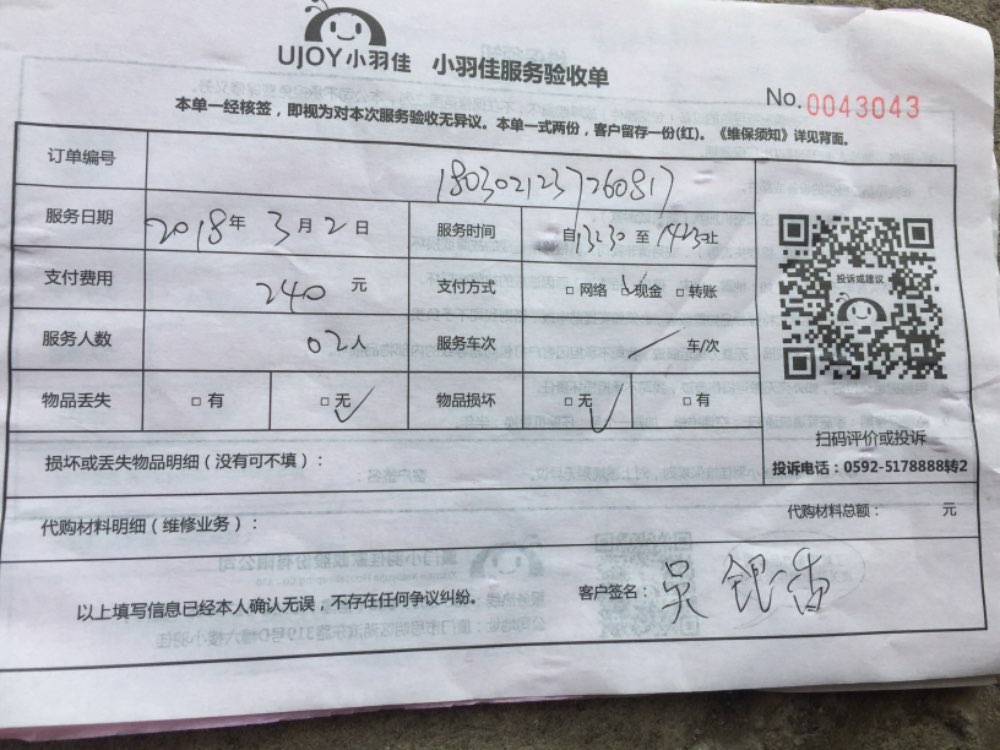 UJOY小羽佳 小羽佳服务验收单
No. 0043043
本单一经核签，即视为对本次服务验收无异议。本单一式两份，客户留存一份(红)。《维保须知》详见背面。
订单编号 1803021237260817
服务日期 2018年3月2日 服务时间 自13:30至14:23止
支付费用 240元 支付方式 □网络 □现金 □转账
服务人数 02人 服务车次 / 车/次
物品丢失 □有 □无 物品损坏 □无 □有
投诉或建议
扫码评价或投诉
投诉电话：0592-5178888转2
损坏或丢失物品明细（没有可不填）：
代购材料明细（维修业务）： 代购材料总额： 元
以上填写信息已经本人确认无误，不存在任何争议纠纷。 客户签名：吴银